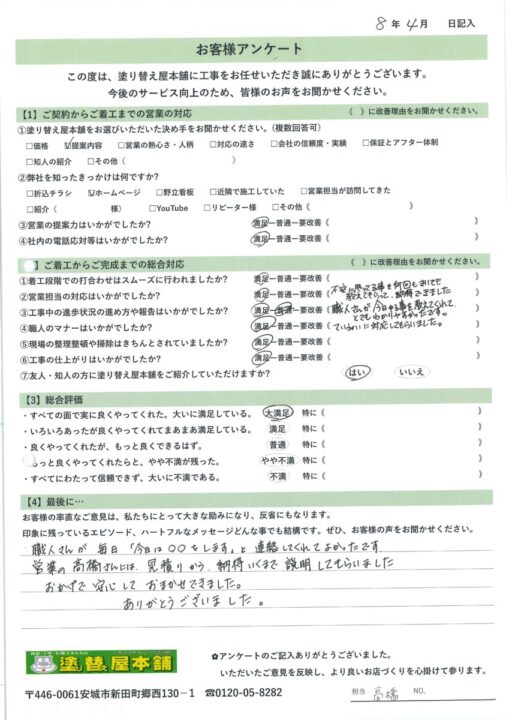 8 年 4 月 日記入
お客様アンケート
この度は、塗り替え屋本舗に工事をお任せいただき誠にありがとうございます。
今後のサービス向上のため、皆様のお声をお聞かせください。
【1】ご契約からご着工までの営業の対応 ( )に改善理由をお聞かせください。
①塗り替え屋本舗をお選びいただいた決め手をお聞かせください。(複数回答可)
□価格 ☑提案内容 □営業の熱心さ・人柄 □対応の速さ □会社の信頼度・実績 □保証とアフター体制
□知人の紹介 □その他( )
②弊社を知ったきっかけは何ですか?
□折込チラシ ☑ホームページ □野立看板 □近隣で施工していた □営業担当が訪問してきた
□紹介( 様) □YouTube □リピーター様 □その他( )
③営業の提案力はいかがでしたか? 満足ー普通ー要改善( )
④社内の電話応対等はいかがでしたか? 満足ー普通ー要改善( )
】ご着工からご完成までの総合対応 ( )に改善理由をお聞かせください。
①着工段階での打合わせはスムーズに行われましたか? 満足ー普通ー要改善( )
②営業担当の対応はいかがでしたか? 満足ー普通ー要改善(不安に思ってる事を何回もきいても教えてもらって、納得できました)
③工事中の進歩状況の進め方や報告はいかがでしたか? 満足ー普通ー要改善(職人さんが今日やる事を教えてくれて、とてもわかりやすかったです。)
④職人のマナーはいかがでしたか? 満足ー普通ー要改善(ていねいに対応してもらいました。)
⑤現場の整理整頓や掃除はきちんとされていましたか? 満足ー普通ー要改善( )
⑥工事の仕上がりはいかがでしたか? 満足ー普通ー要改善( )
⑦友人・知人の方に塗り替え屋本舗をご紹介していただけますか? はい いいえ
【3】総合評価
・すべての面で実に良くやってくれた。大いに満足している。 大満足 特に( )
・いろいろあったが良くやってくれてまあまあ満足している。 満足 特に( )
・良くやってくれたが、もっと良くできるはず。 普通 特に( )
もっと良くやってくれたらと、やや不満が残った。 やや不満 特に( )
・すべてにわたって信頼できず、大いに不満である。 不満 特に( )
【4】最後に…
お客様の率直なご意見は、私たちにとって大きな励みになり、反省にもなります。
印象に残っているエピソード、ハートフルなメッセージどんな事でも結構です。ぜひ、お客様の声をお聞かせください。
職人さんが毎日「今日は○○をします」と連絡してくれてよかったです
営業の高橋さんには、見積りから、納得いくまで説明してもらいました
おかげで安心しておまかせできました。
ありがとうございました。
塗り替え屋本舗
✿アンケートのご記入ありがとうございました。
いただいたご意見を反映し、より良いお店づくりを心掛けて参ります。
〒446-0061安城市新田町郷西130－1 ☎0120-05-8282
担当 高橋 NO.